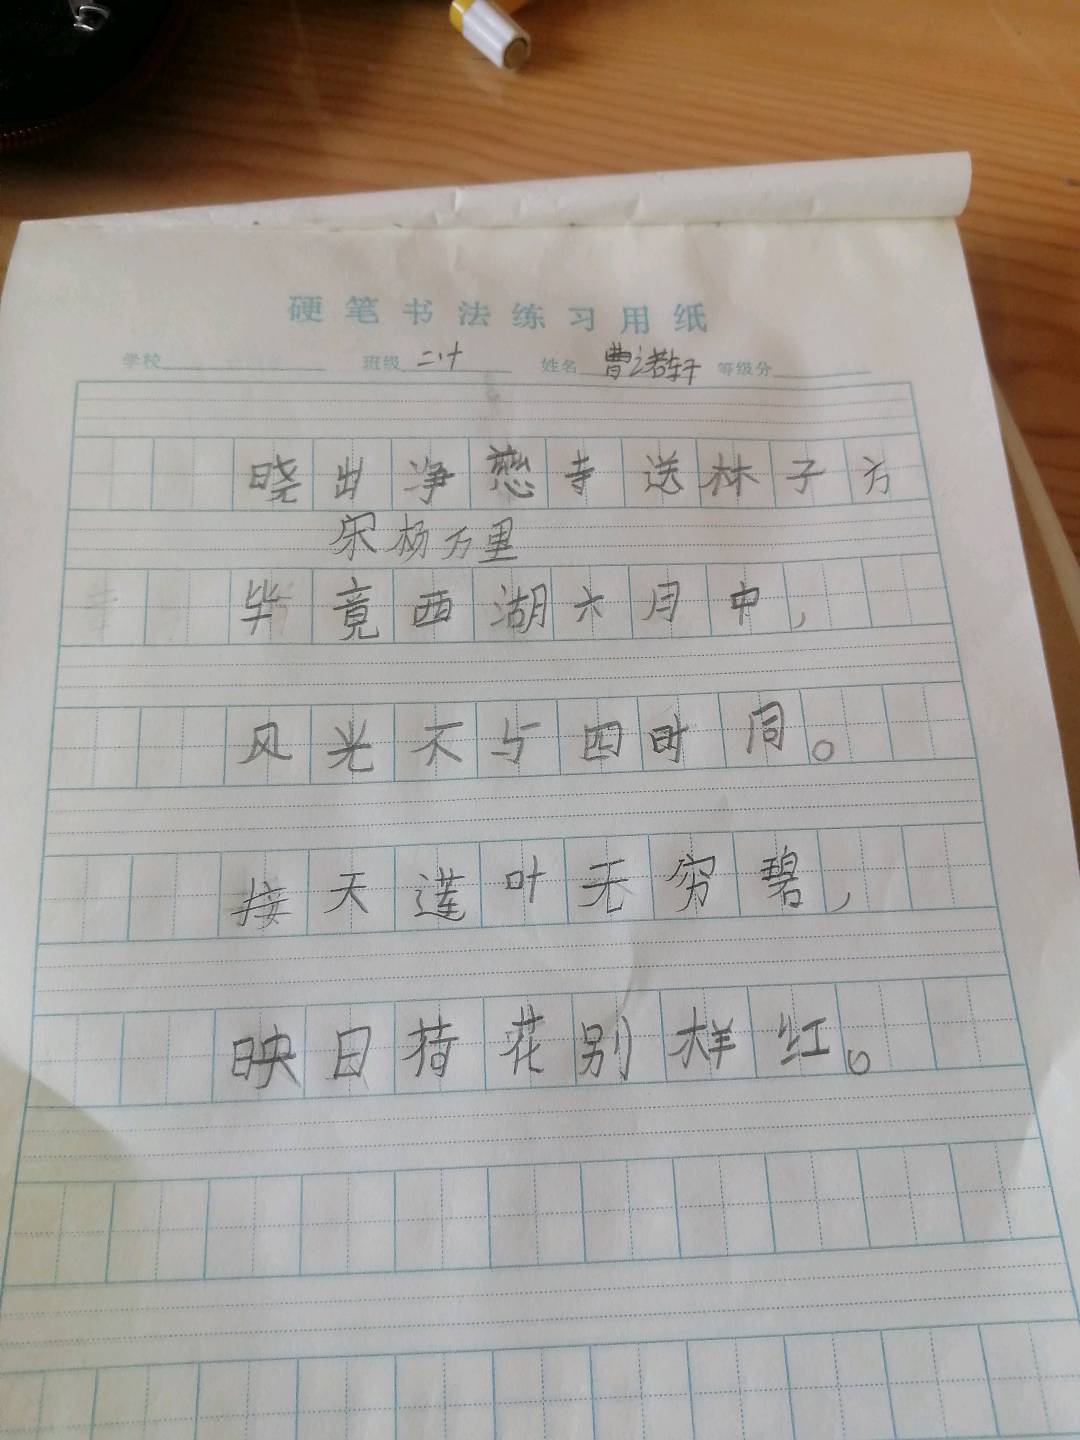 硬笔书法练习用纸
学校 班级 二十 姓名 曹诸轩 等级分
晓出净慈寺送林子方
宋杨万里
毕竟西湖六月中，
风光不与四时同。
接天莲叶无穷碧，
映日荷花别样红。